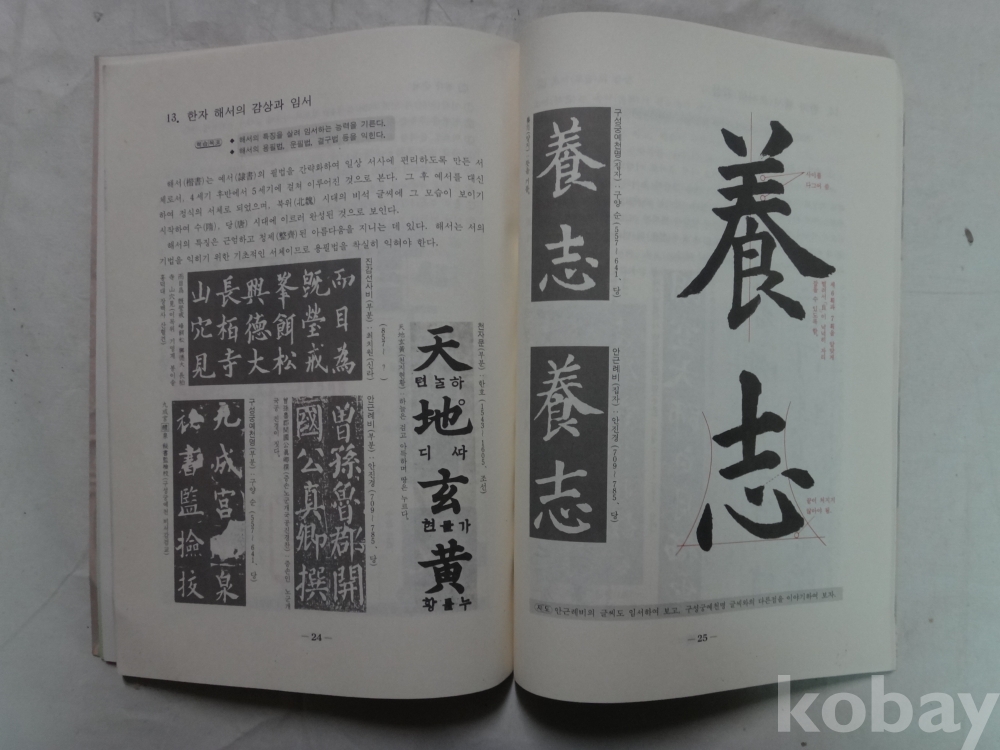 13. 한자 해서의 감상과 임서
학습목표
● 해서의 특징을 살려 임서하는 능력을 기른다.
● 해서의 용필법, 운필법, 결구법 등을 익힌다.
해서(楷書)는 예서(隷書)의 필법을 간략화하여 일상 서사에 편리하도록 만든 서
체로서, 4세기 후반에서 5세기에 걸쳐 이루어진 것으로 본다. 그 후 예서를 대신
하여 정식의 서체로 되었으며, 북위(北魏) 시대의 비석 글씨에 그 모습이 보이기
시작하여 수(隋), 당(唐) 시대에 이르러 완성된 것으로 보인다.
해서의 특징은 근엄하고 정제(整齊)된 아름다움을 지니는 데 있다. 해서는 서의
기법을 익히기 위한 기초적인 서체이므로 용필법을 착실히 익혀야 한다.
진감선사비(부분)··최치원(신라)
(857~ ?)
而目為
既瑩戒
峯餌松
興德大
長栢寺
山穴見
천자문(부분)··한호(1543~1605, 조선)
天
텬 놀하
地
디 따
玄
현 믈가
黃
황 믈누
天地玄黃(천지현황) 하늘은 검고 아득하며 땅은 누르다.
안근례비(부분)··안진경(709~785, 당)
曽孫魯郡開
國公真卿撰
구성궁예천명(부분)··구양 순(557~641, 당)
九成宮 泉
秘書監撿挍
-24-
구성궁예천명(집자)··구양 순(557~641, 당)
養
志
안근례비(집자)··안진경(709~785, 당)
養
志
養
志
안근례비의 글씨도 임서하여 보고, 구성궁예천명 글씨와의 다른점을 이야기하여 보자.
-25-
kobay